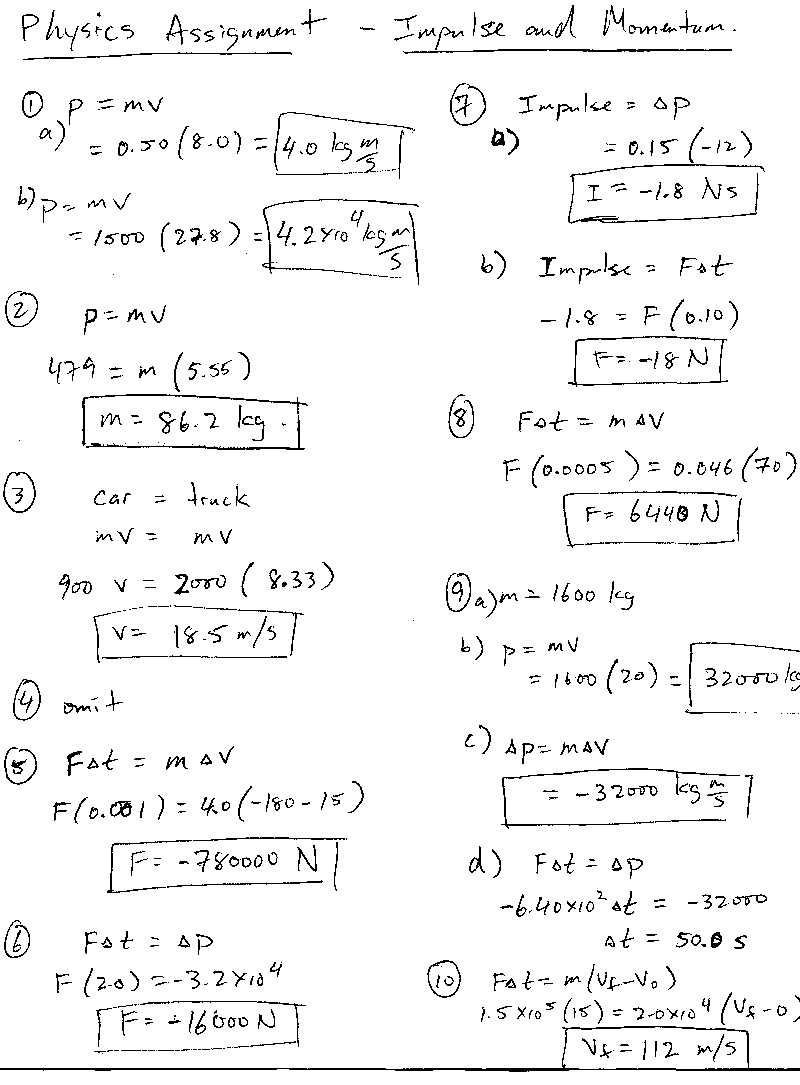 Physics Assignment - Impulse and Momentum.
① p = mv
a) = 0.50 (8.0) = 4.0 kg m/s
b) p = mv
= 1500 (27.8) = 4.2x10⁴ kg m/s
② p = mv
479 = m (5.55)
m = 86.2 kg.
③ car = truck
mv = mv
900 v = 2000 (8.33)
v = 18.5 m/s
④ omit
⑤ FΔt = mΔV
F(0.001) = 4.0 (-180-15)
F = -780000 N
⑥ FΔt = Δp
F (2.0) = -3.2x10⁴
F = -16000 N
⑦ Impulse = Δp
a) = 0.15 (-12)
I = -1.8 Ns
b) Impulse = FΔt
-1.8 = F (0.10)
F = -18 N
⑧ FΔt = mΔV
F (0.0005) = 0.046 (70)
F = 6440 N
⑨ a) m = 1600 kg
b) p = mv
= 1600 (20) = 32000 kg
c) Δp = mΔV
= -32000 kg m/s
d) FΔt = Δp
-6.40x10² Δt = -32000
Δt = 50.0 s
⑩ FΔt = m(Vf-Vo)
1.5x10⁵ (15) = 2.0x10⁴ (Vf-0)
Vf = 112 m/s